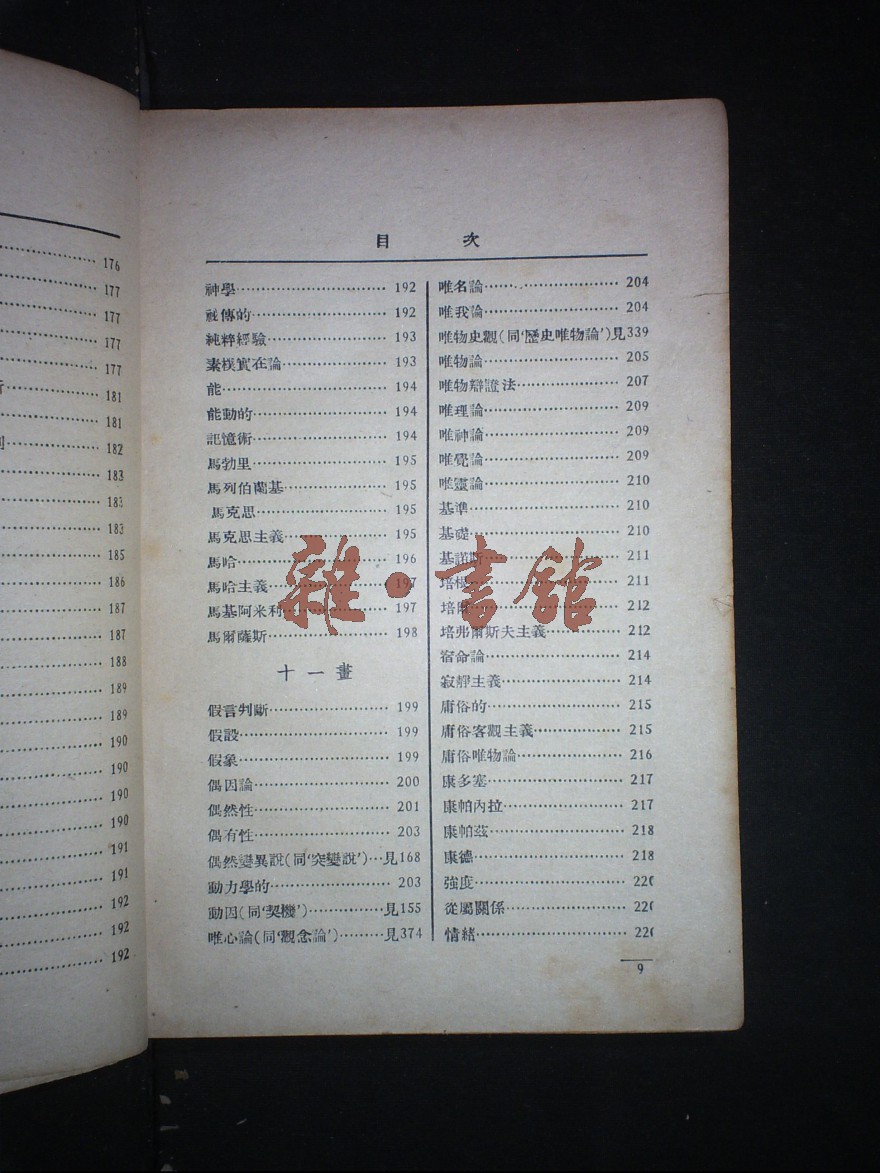 176
177
177
177
177
181
181
182
183
183
183
185
186
187
187
188
189
189
190
190
190
190
191
191
192
192
192
目 次
神學 192
祕傳的 192
純粹經驗 193
素樸實在論 193
能 194
能動的 194
記憶術 194
馬勃里 195
馬列伯蘭基 195
馬克思 195
馬克思主義 195
馬哈 196
馬哈主義 197
馬基阿米利 197
馬爾薩斯 198
十一畫
假言判斷 199
假設 199
假象 199
偶因論 200
偶然性 201
偶有性 203
偶然變異說(同‘突變說’)…見168
動力學的 203
動因(同‘契機’)…見155
唯心論(同‘觀念論’)…見374
唯名論 204
唯我論 204
唯物史觀(同‘歷史唯物論’)見339
唯物論 205
唯物辯證法 207
唯理論 209
唯神論 209
唯覺論 209
唯靈論 210
基準 210
基礎 210
基諾斯 211
培根 211
培爾 212
培弗爾斯夫主義 212
宿命論 214
寂靜主義 214
庸俗的 215
庸俗客觀主義 215
庸俗唯物論 216
康多塞 217
康帕內拉 217
康帕茲 218
康德 218
強度 220
從屬關係 220
情緒 220
9
雜·書館